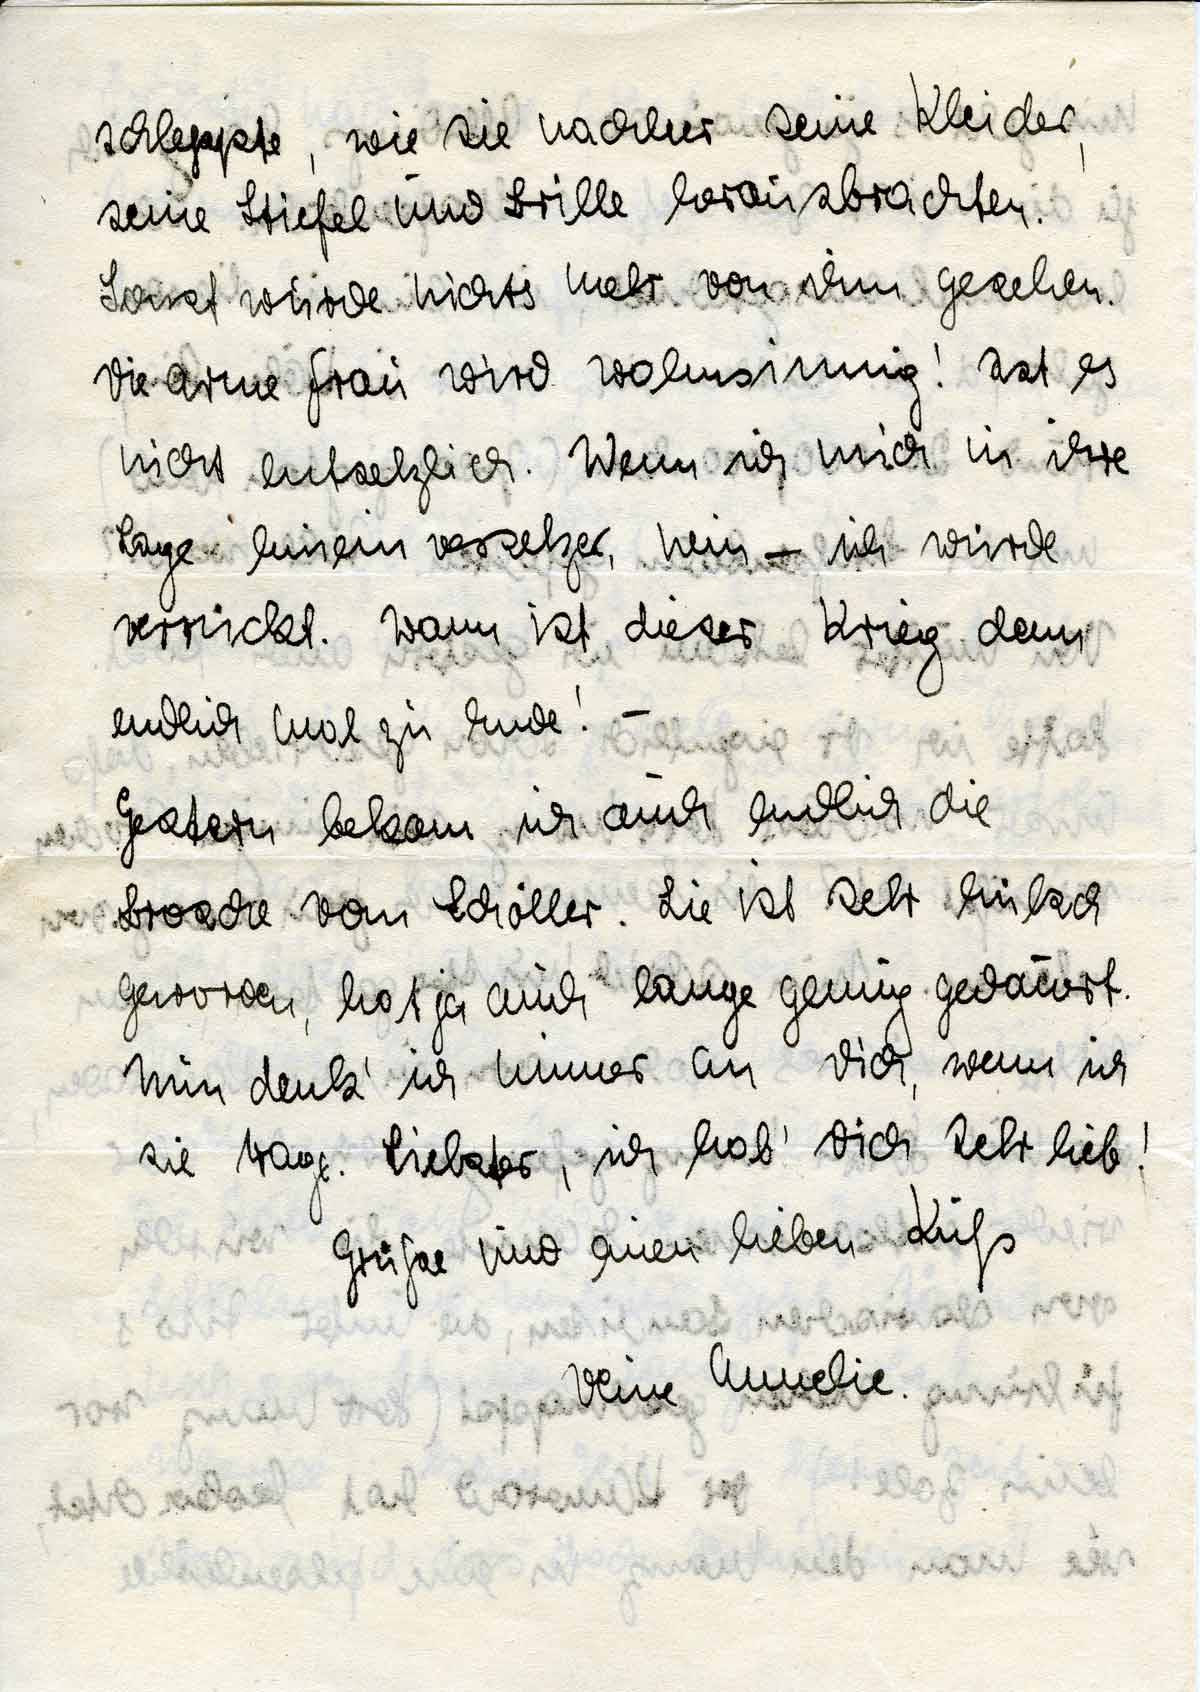 schleppte, wie sie nachher seine Kleider,
seine Stiefel und Brille herausbrachten.
Sonst wurde nichts mehr von ihm gesehen.
Die arme Frau wird wahnsinnig! Ist es
nicht entsetzlich. Wenn ich mich in ihre
Lage hinein versetze, nein – ich würde
verrückt. Wann ist dieser Krieg denn
endlich mal zu Ende! –
Gestern bekam ich auch endlich die
Brosche von Schöller. Sie ist sehr hübsch
geworden, hat ja auch lange genug gedauert.
Nun denk' ich immer an Dich, wenn ich
sie trage. Liebster, ich hab' Dich sehr lieb!
Grüße und einen lieben Kuß
Deine Annelie.